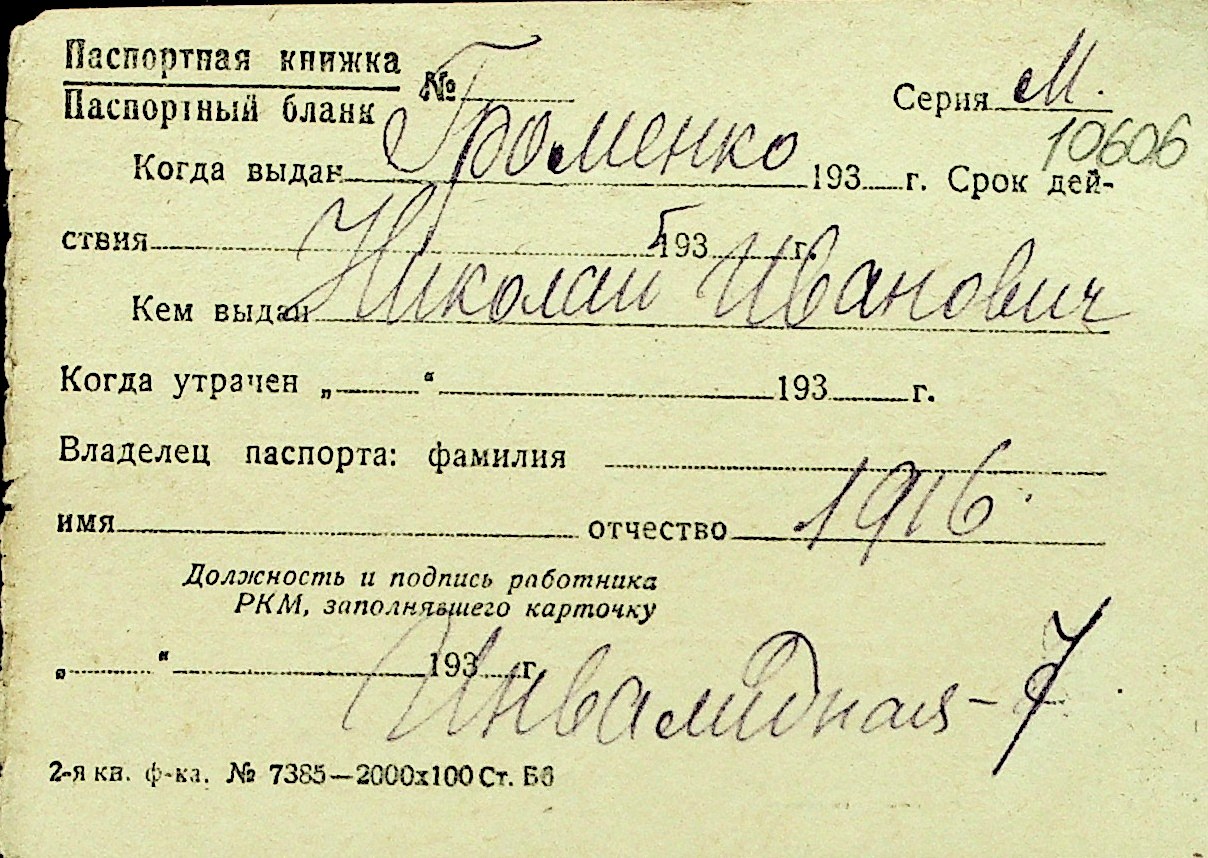 Паспортная книжка
Паспортный бланк
№
Серия М.
10606
Громенко
Когда выдан 193 г. Срок дей-
ствия 193 г.
Николай Иванович
Кем выдан
Когда утрачен „ “ 193 г.
Владелец паспорта: фамилия
1916
имя отчество
Должность и подпись работника
РКМ, заполнявшего карточку
„ “ 193 г.
Инвалидная - 7
2-я кв. ф-ка. № 7385—2000х100 Ст. Бб